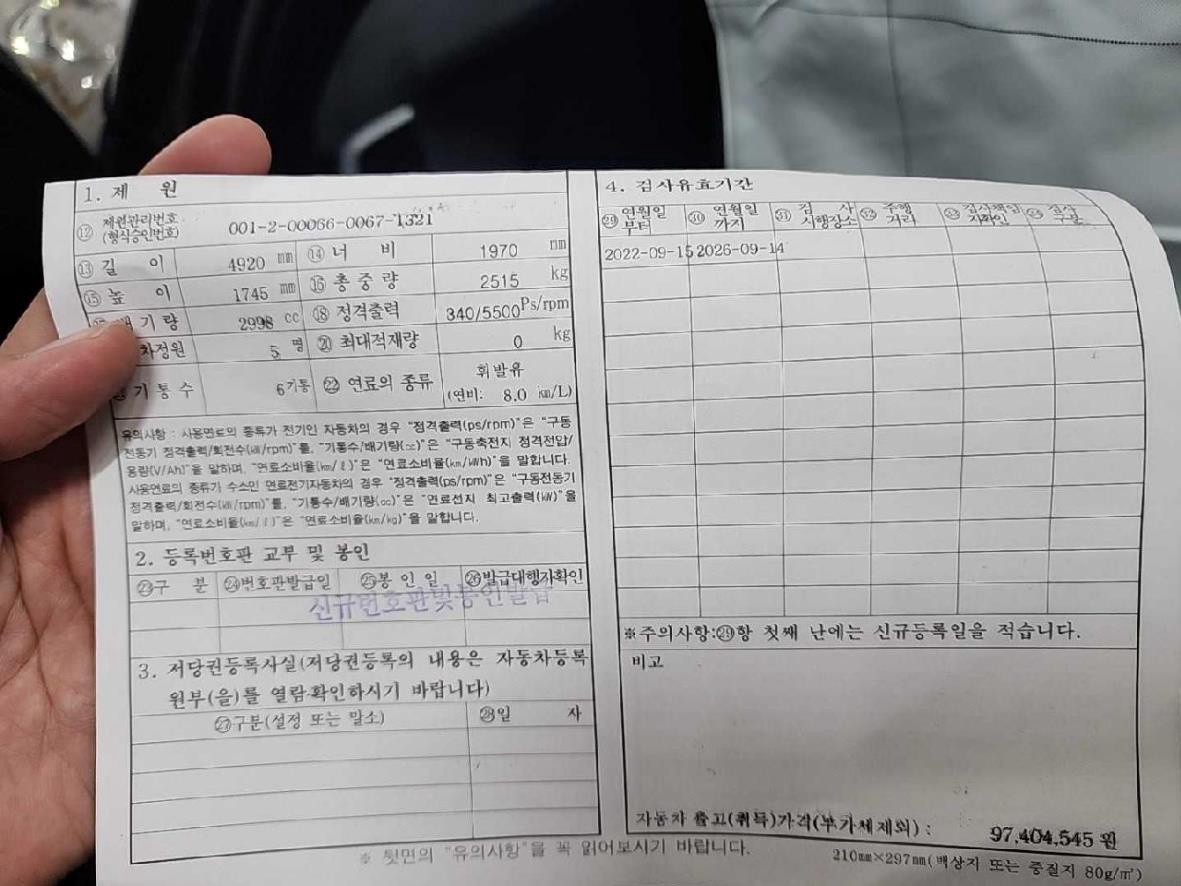 1. 제 원
⑫ 제원관리번호 (형식승인번호) 001-2-00066-0067-1321
⑬ 길 이 4920 mm ⑭ 너 비 1970 mm
⑮ 높 이 1745 mm ⑯ 총 중 량 2515 kg
기 량 2998 cc ⑱ 정격출력 340/5500 Ps/rpm
차정원 5 명 ⑳ 최대적재량 0 kg
기 통 수 6기통 ㉒ 연료의 종류 휘발유
(연비: 8.0 km/L)
유의사항 : 사용연료의 종류가 전기인 자동차의 경우 "정격출력(ps/rpm)"은 "구동
전동기 정격출력/회전수(kW/rpm)"를, "기통수/배기량(cc)"은 "구동축전지 정격전압/
용량(V/Ah)"을 말하며, "연료소비율(km/ℓ)"은 "연료소비율(km/kWh)"을 말합니다.
사용연료의 종류가 수소인 연료전기자동차의 경우 "정격출력(ps/rpm)"은 "구동전동기
정격출력/회전수(kW/rpm)"를, "기통수/배기량(cc)"은 "연료선지 최고출력(kW)"을
말하며, "연료소비율(km/ℓ)"은 "연료소비율(km/kg)"을 말합니다.
2. 등록번호판 교부 및 봉인
㉓구 분 ㉔번호판발급일 ㉕봉 인 일 ㉖발급대행자확인
신규번호판및봉인발급
3. 저당권등록사실(저당권등록의 내용은 자동차등록
원부(을)를 열람확인하시기 바랍니다)
㉗구분(설정 또는 말소) ㉘일 자
4. 검사유효기간
㉙ 연월일 부터 ㉚ 연월일 까지 ㉛ 검 사 시행장소 ㉜ 주행 거리 ㉝ 검사책임 자확인 검사 구분
2022-09-15 2026-09-14
※주의사항:㉙항 첫째 난에는 신규등록일을 적습니다.
비고
자동차 출고(취득)가격(부가세제외) : 97,404,545 원
※ 뒷면의 "유의사항"을 꼭 읽어보시기 바랍니다.
210mm×297mm(백상지 또는 중질지 80g/㎡)